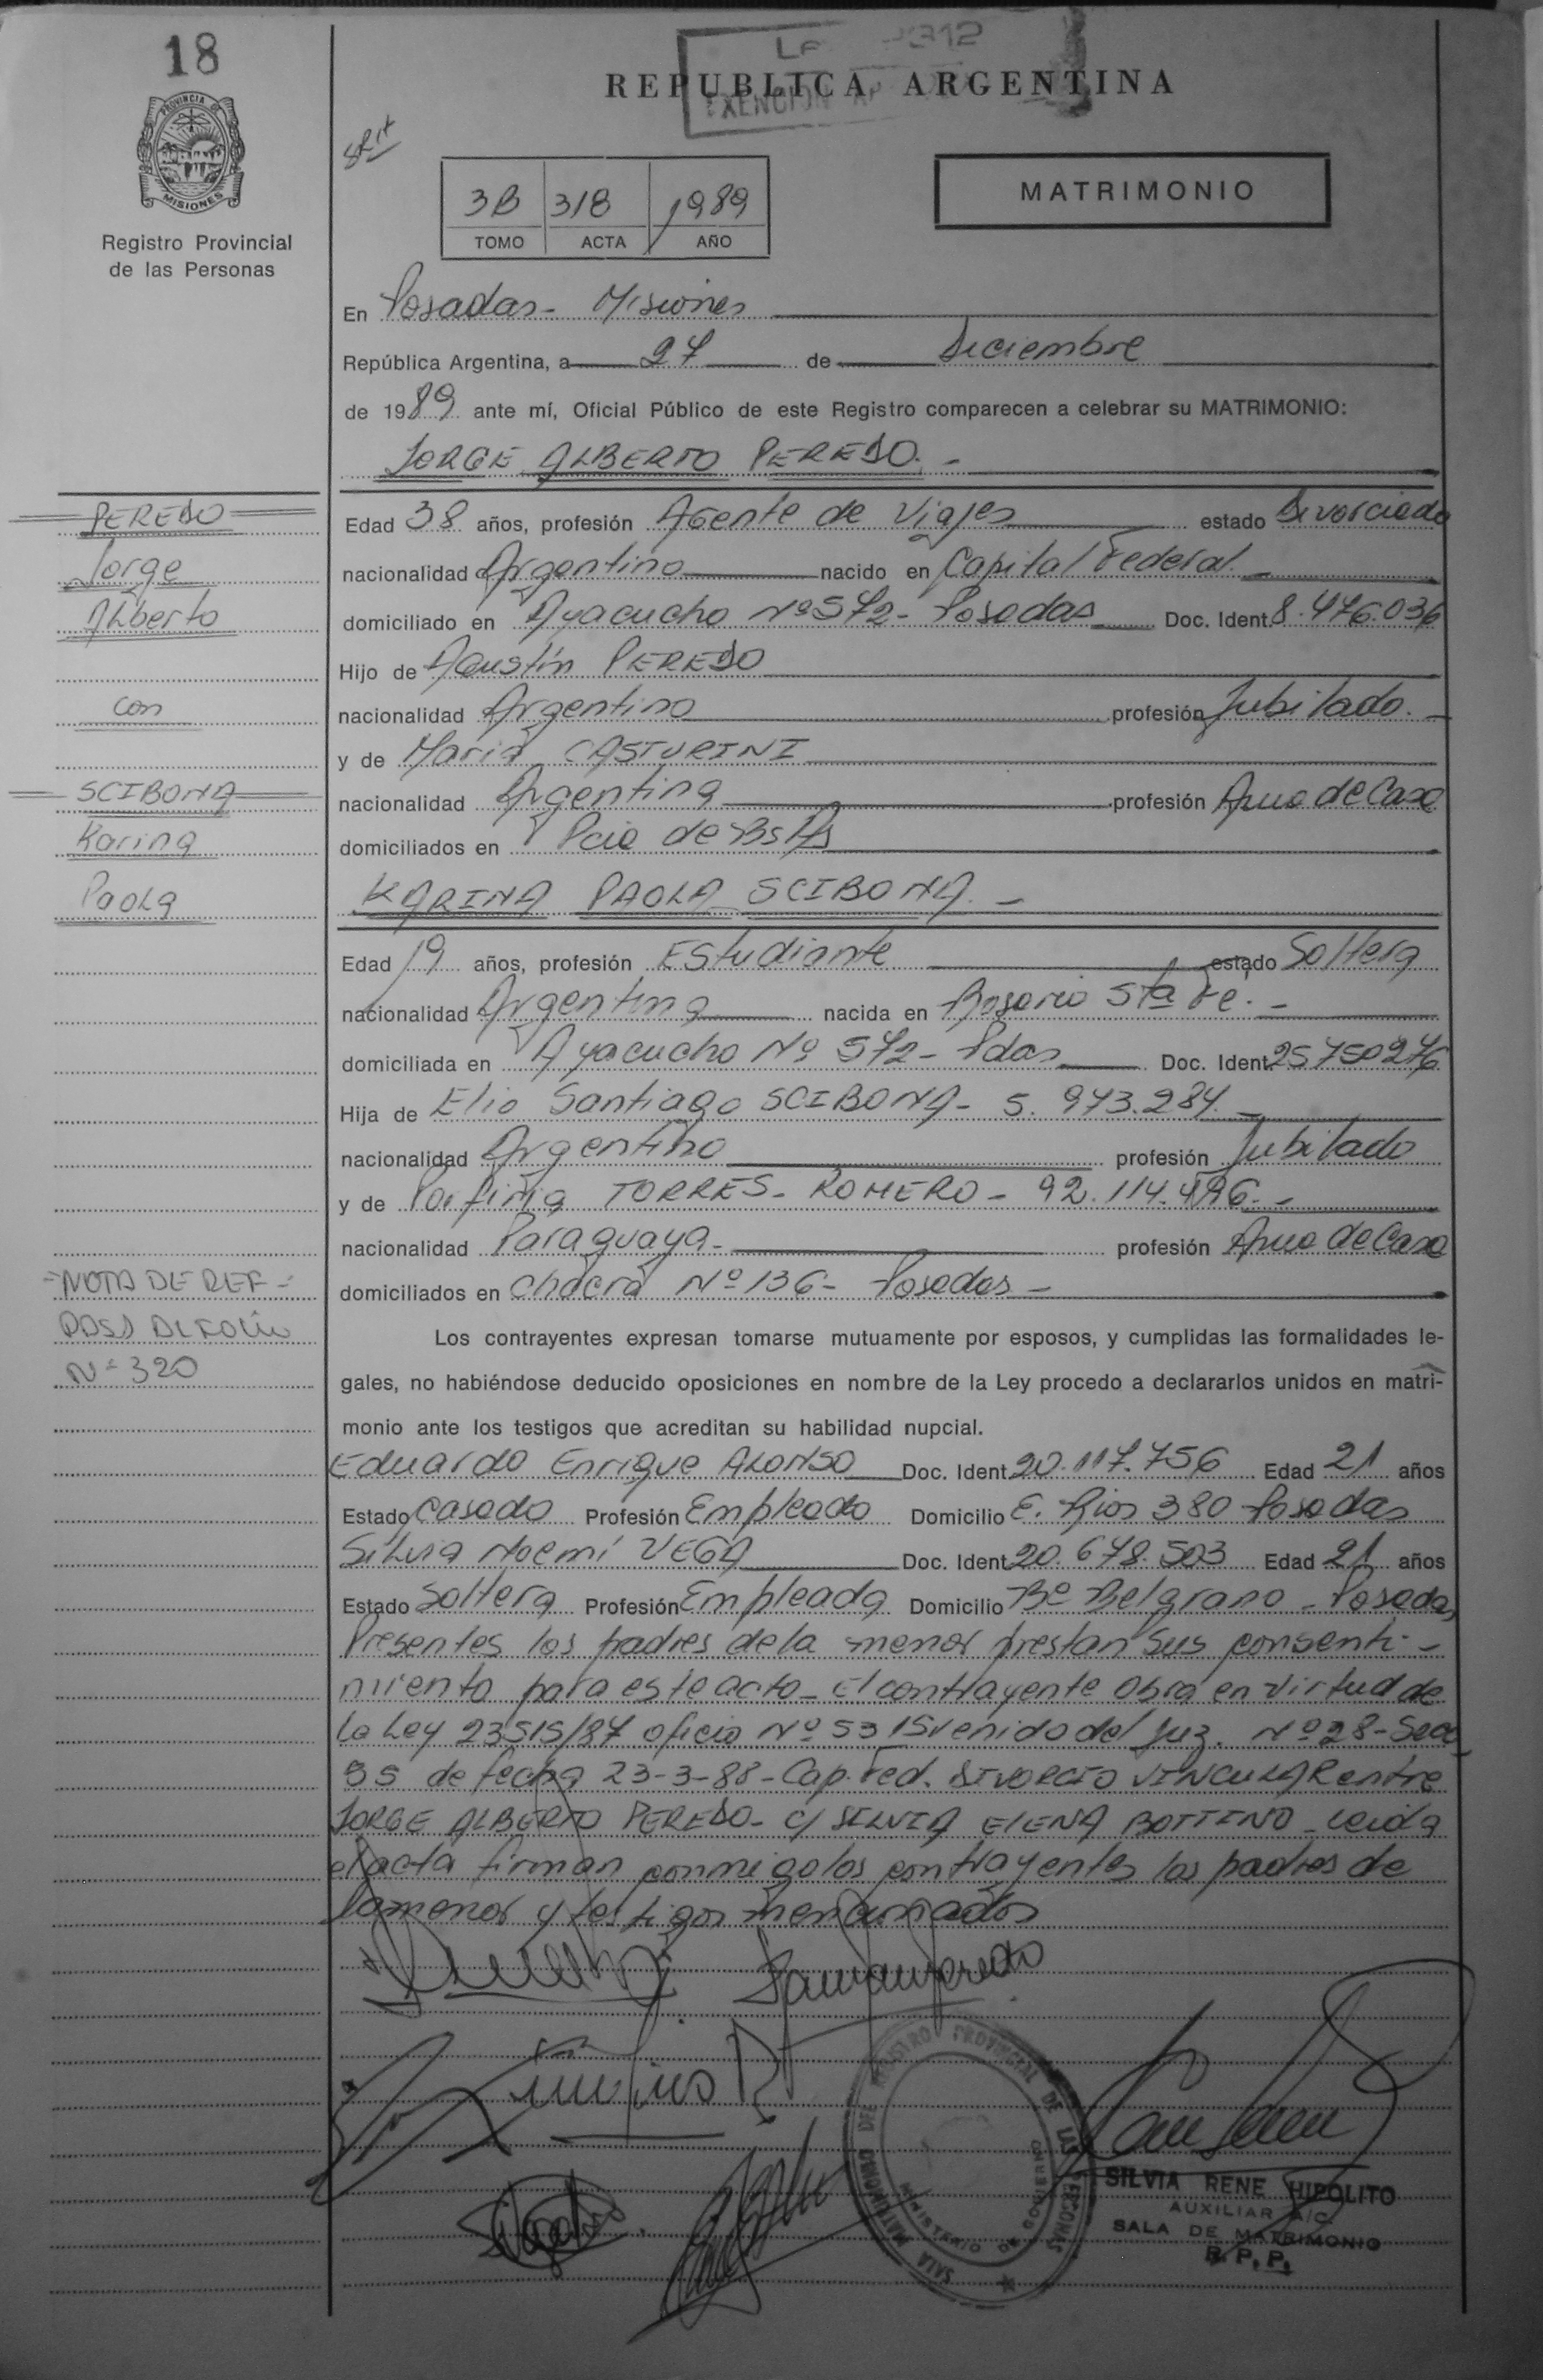 18
REPUBLICA ARGENTINA
EXENCION
PROVINCIA DE
MISIONES
Registro Provincial
de las Personas
3B 318 1989
TOMO ACTA AÑO
MATRIMONIO
En Posadas - Misiones
República Argentina, a 27 de Diciembre
de 1989 ante mí, Oficial Público de este Registro comparecen a celebrar su MATRIMONIO:
JORGE ALBERTO PEREDO. -
PEREDO
Jorge
Alberto
con
SCIBONA
Karina
Paola
Edad 38 años, profesión Agente de Viajes estado Divorciado
nacionalidad Argentino nacido en Capital Federal. -
domiciliado en Ayacucho Nº 572 - Posadas Doc. Ident. 8.476.036
Hijo de Agustín PEREDO
nacionalidad Argentino profesión Jubilado. -
y de María CASTURINI
nacionalidad Argentina profesión Ama de Casa
domiciliados en Pcia de Bs As
KARINA PAOLA SCIBONA. -
Edad 19 años, profesión Estudiante estado Soltera
nacionalidad Argentina nacida en Rosario Sta Fe. -
domiciliada en Ayacucho Nº 572 - Pdas Doc. Ident. 25750276
Hija de Elio Santiago SCIBONA - 5.973.284. -
nacionalidad Argentino profesión Jubilado
y de Porfiria TORRES - ROMERO - 92.114.496. -
nacionalidad Paraguaya - profesión Ama de Casa
domiciliados en Chacra Nº 136 - Posadas -
- NOTA DE REF -
PASA AL FOLIO
Nº 320
Los contrayentes expresan tomarse mutuamente por esposos, y cumplidas las formalidades le-
gales, no habiéndose deducido oposiciones en nombre de la Ley procedo a declararlos unidos en matri-
monio ante los testigos que acreditan su habilidad nupcial.
Eduardo Enrique ALONSO Doc. Ident. 20.117.756 Edad 21 años
Estado Casado Profesión Empleado Domicilio E. Rios 380 Posadas
Silvia Noemí VEGA Doc. Ident. 20.678.503 Edad 21 años
Estado Soltera Profesión Empleada Domicilio Bº Belgrano - Posadas
Presentes los padres de la menor prestan sus consenti-
miento para este acto - El contrayente obra en virtud de
la Ley 23515/87 oficio Nº 53 venido del Juz. Nº 28 - Sec
55 de fecha 23-3-88 - Cap. Fed. DIVORCIO VINCULAR entre
JORGE ALBERTO PEREDO - C/ SILVIA ELENA BOTTINO - leida
el acta firman conmigo los contrayentes los padres de
la menor y testigos mencionados
SALA MATRIMONIO DEL REGISTRO PROVINCIAL DE LAS PERSONAS
MINISTERIO DE GOBIERNO
SILVIA RENE HIPOLITO
AUXILIAR A/C.
SALA DE MATRIMONIO
R. P. P.